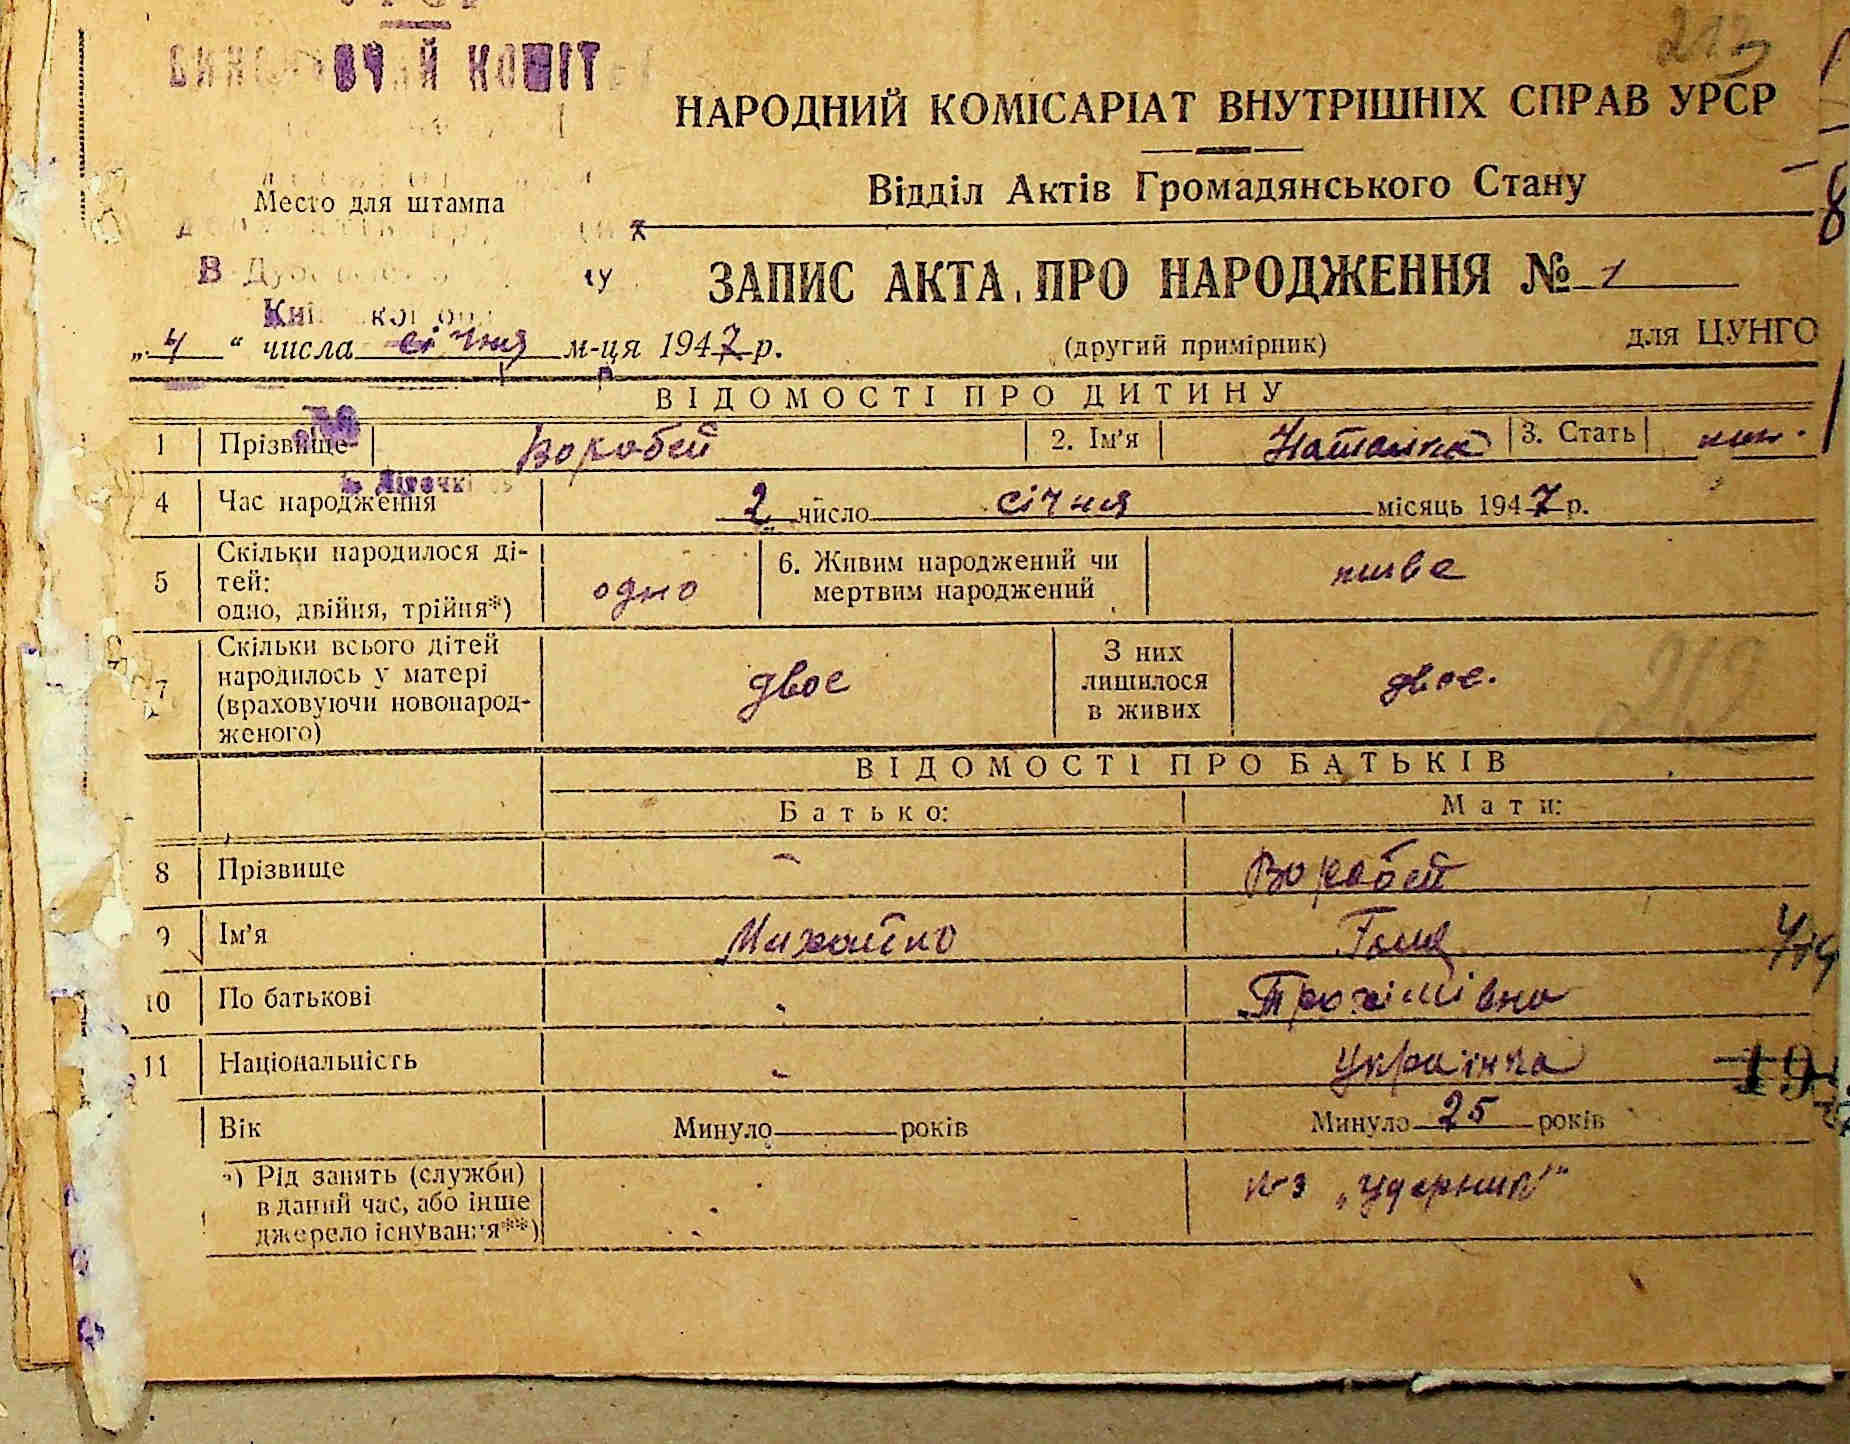 213
НАРОДНИЙ КОМІСАРІАТ ВНУТРІШНІХ СПРАВ УРСР
Відділ Актів Громадянського Стану
Место для штампа
ЗАПИС АКТА ПРО НАРОДЖЕННЯ № 1
„4“ числа січня м-ця 1947 р. (другий примірник) для ЦУНГО
ВІДОМОСТІ ПРО ДИТИНУ
1 Прізвище Воробей 2. Ім'я Наталка 3. Стать жін.
4 Час народження 2 число січня місяць 1947 р.
5 Скільки народилося ді-
тей:
одно, двійня, трійня*) одно 6. Живим народжений чи
мертвим народжений живе
7 Скільки всього дітей
народилось у матері
(враховуючи новонарод-
женого) двоє З них
лишилося
в живих двоє.
ВІДОМОСТІ ПРО БАТЬКІВ
Батько: Мати:
8 Прізвище - Воробей
9 Ім'я Михайло
10 По батькові - Трохимівна
11 Національність - Українка
Вік Минуло років Минуло 25 років
а) Рід занять (служби)
в даний час, або інше
джерело існування**) к-з „Ударник"